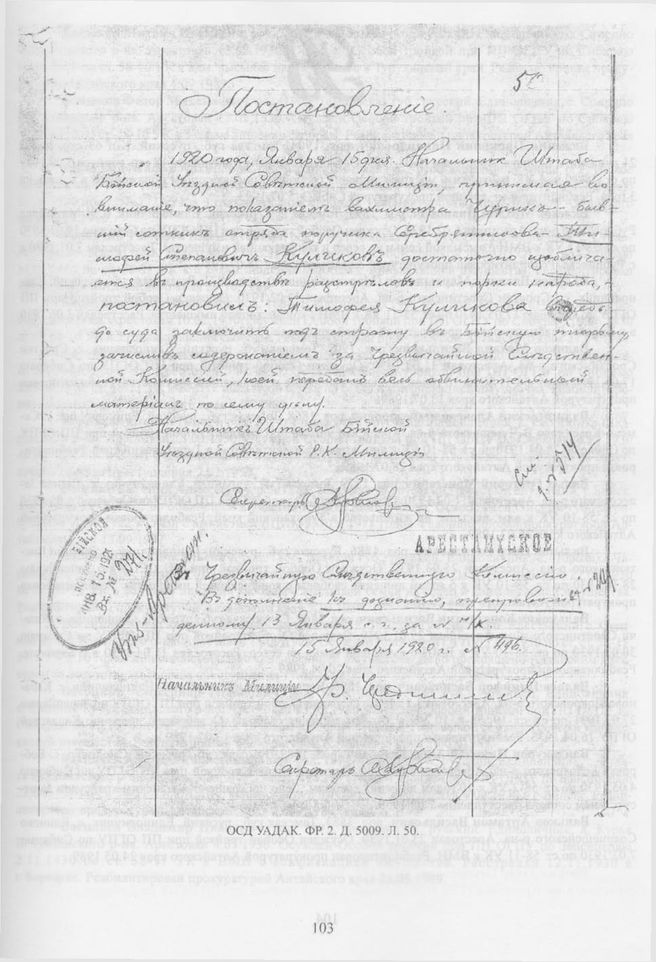 5
Постановленiе.
1920 года, Января 15 дня. Начальник Штаба
Бiйской Уездной Советской Милицiи, принимая во
внимание, что показанiем вахмистра быв-
ший сотник отряда поручика Серебренникова Ти-
мофей Степанович Куликовъ достаточно изоблича-
ется въ производстве разстрелов и порки народа, -
постановилъ: Тимофея Куликова впредь
до суда заключить под стражу въ Бiйскую тюрьму,
зачислив содержанием за Чрезвычайной Следствен-
ной Комиссией, коей передать весь обвинительный
материал по сему делу.
Начальникъ Штаба Бiйской
Уездной Советской Р.К. Милицiи
Секретарь
См.
АРЕСТАНТСКОЕ
БIЙСКОЙ
ЯНВ. 15. 1920
Вх. №
В Чрезвычайную Следственную Комиссiю
В дополнение к дознанию, препровож-
денному 13 Января с. г. за №
15 Января 1920 г. № 496.
Начальникъ Милицiи
Секретарь
ОСД УАДАК. ФР. 2. Д. 5009. Л. 50.
103